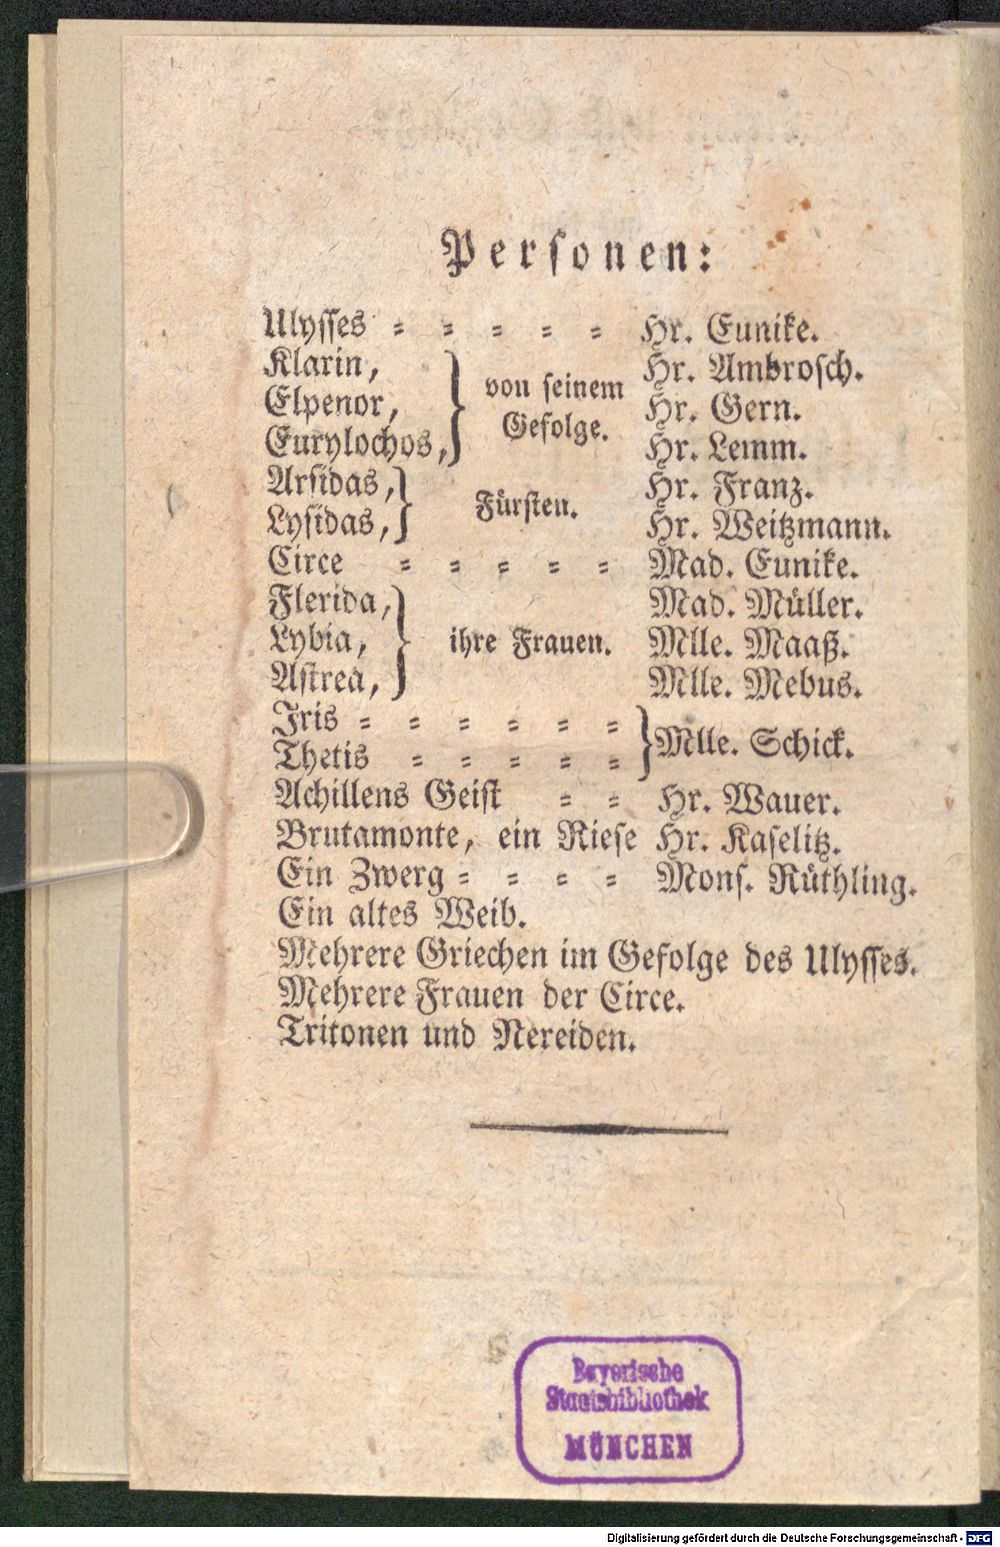 Personen:
Ulysses = = = = = Hr. Eunike.
Klarin, Hr. Ambrosch.
Elpenor, von seinem Gefolge. Hr. Gern.
Eurylochos, Hr. Lemm.
Arsidas, Hr. Franz.
Lysidas, Fürsten. Hr. Weitzmann.
Circe = = = = = Mad. Eunike.
Flerida, Mad. Müller.
Lybia, ihre Frauen. Mlle. Maaß.
Astrea, Mlle. Mebus.
Iris = = = = = =
Thetis = = = = = Mlle. Schick.
Achillens Geist = = Hr. Wauer.
Brutamonte, ein Riese Hr. Kaselitz.
Ein Zwerg = = = = Mons. Rüthling.
Ein altes Weib.
Mehrere Griechen im Gefolge des Ulysses.
Mehrere Frauen der Circe.
Tritonen und Nereiden.
Bayerische
Staatsbibliothek
MÜNCHEN
Digitalisierung gefördert durch die Deutsche Forschungsgemeinschaft - DFG